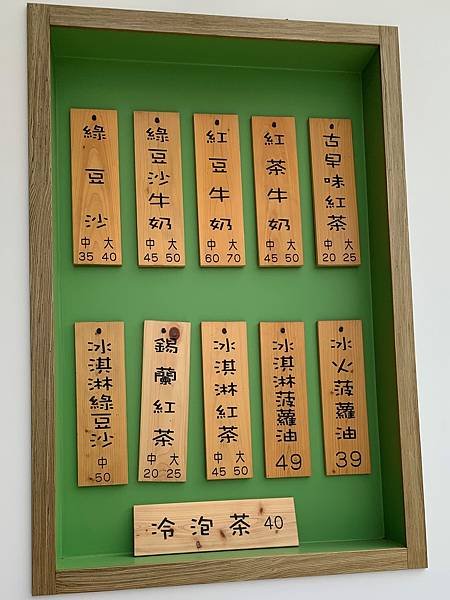 綠豆沙
中 大
35 40
綠豆沙牛奶
中 大
45 50
紅豆牛奶
中 大
60 70
紅茶牛奶
中 大
45 50
古早味紅茶
中 大
20 25
冰淇淋綠豆沙
中
50
錫蘭紅茶
中 大
20 25
冰淇淋紅茶
中 大
45 50
冰淇淋菠蘿油
49
冰火菠蘿油
39
冷泡茶 40